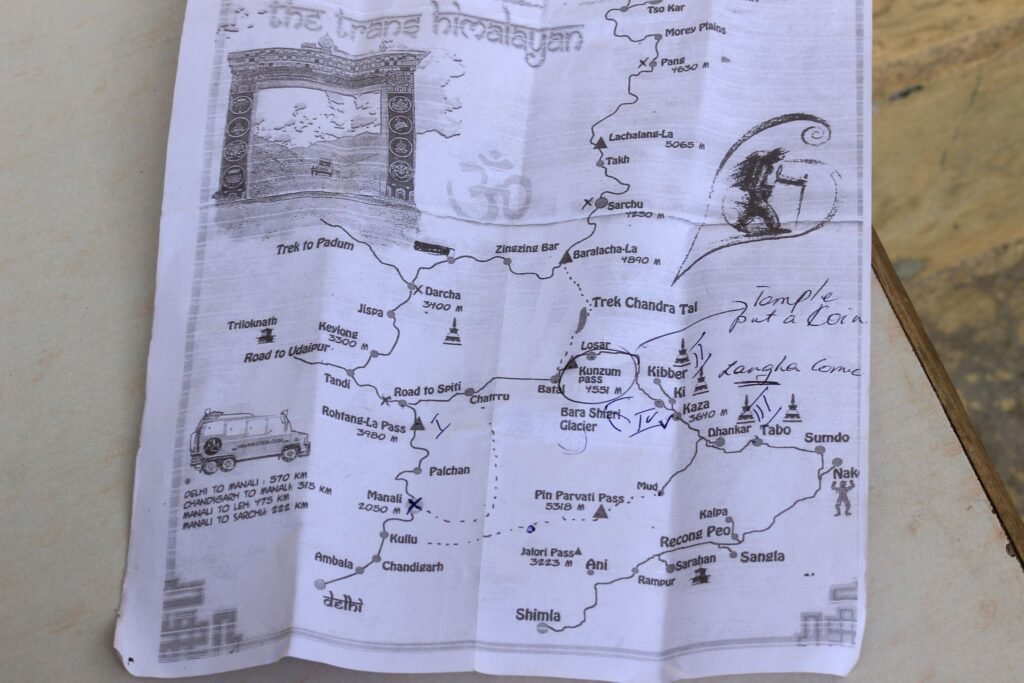 the trans himalayan
Tso Kar
Morey Plains
Pang
4630 M
Lachalang-La
5065 M
Takh
Sarchu
4250 M
Trek to Padum
Zingzing Bar
Baralacha-La
4890 M
Darcha
3400 M
Trek Chandra Tal
Temple
put a Coin
Jispa
Triloknath
Keylong
3300 M
Losar
Road to Udaipur
Kunzum
pass
4551 M
Kibber
II
Langha
Ki
Tandi
Road to Spiti
Chatrru
Batal
Kaza
3640 M
Rohtang-La Pass
3980 M
I
Bara Shigri
Glacier
IV
III
Dhankar
Tabo
Sumdo
Palchan
Nak
DELHI TO MANALI : 570 KM
CHANDIGARH TO MANALI: 315 KM
MANALI TO LEH: 475 KM
MANALI TO SARCHU: 222 KM
Manali
2050 M
Pin Parvati Pass
5318 M
Mud
Kullu
Kalpa
Recong Peo
Jalori Pass
3223 M
Ani
Sarahan
Sangla
Ambala
Chandigarh
Rampur
Delhi
Shimla
ॐ